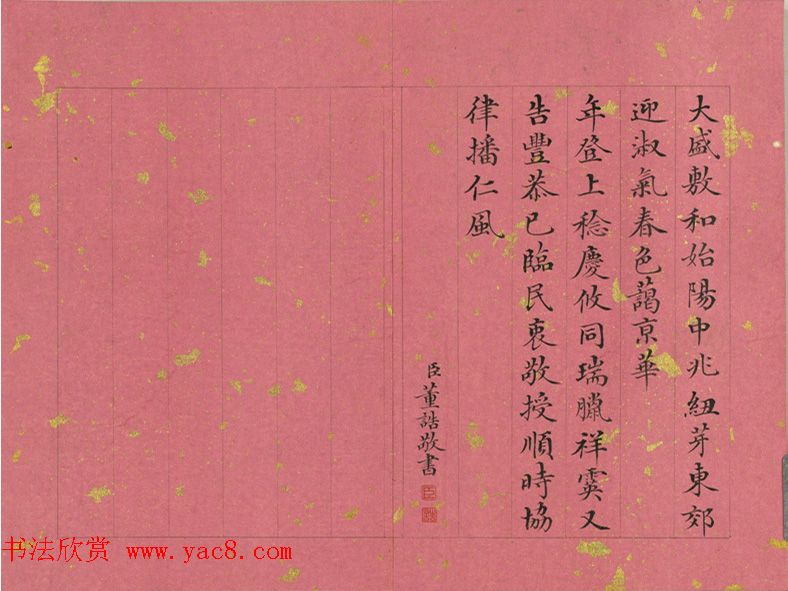 大盛敷和始陽中兆紐芽東郊
迎淑氣春色藹京華
年登上稔慶攸同瑞臘祥霙又
告豐恭己臨民衷敬授順時協
律播仁風
臣董誥敬書
书法欣赏 www.yac8.com